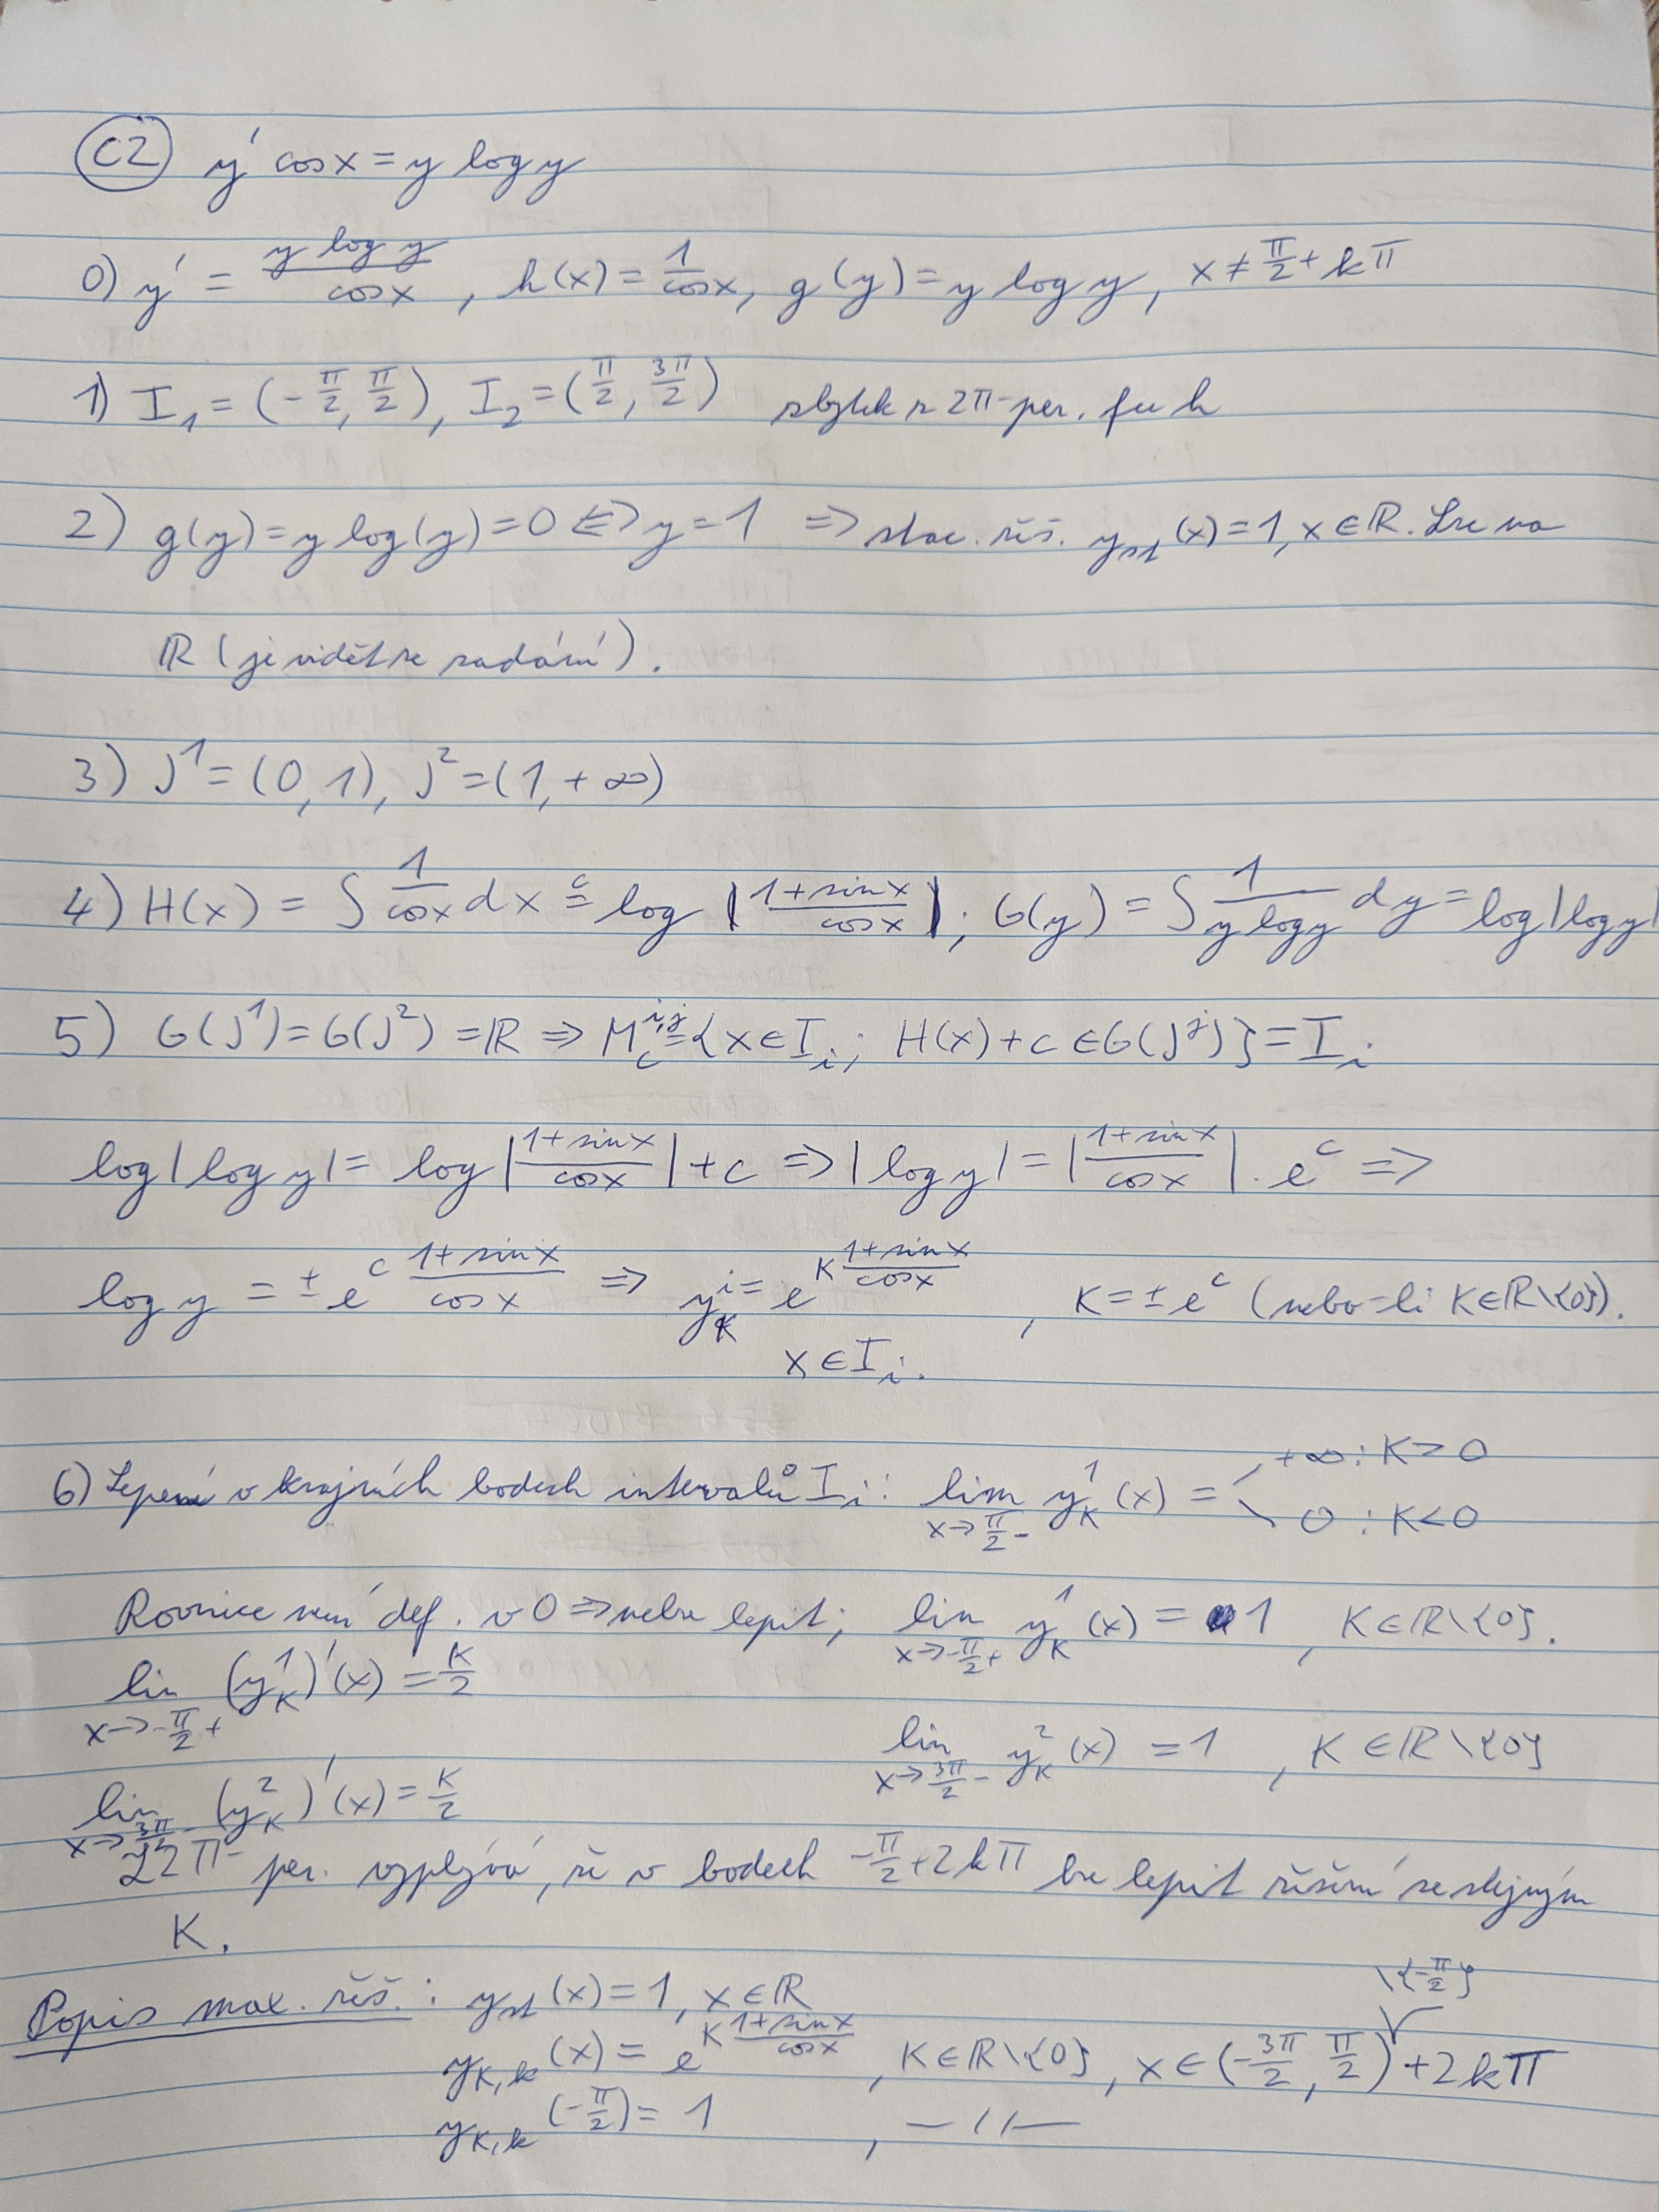 C2 y' cos x = y log y
0) y' = \frac{y log y}{cos x}, h(x) = \frac{1}{cos x}, g(y) = y log y, x ≠ \frac{π}{2} + kπ
1) I_1 = (-\frac{π}{2}, \frac{π}{2}), I_2 = (\frac{π}{2}, \frac{3π}{2}) zbytek z 2π-per. fu h
2) g(y) = y log(y) = 0 ⇔ y = 1 ⇒ stac. řeš. y_{st}(x) = 1, x ∈ ℝ. Lze na
ℝ (je vidět ze zadání).
3) J^1 = (0, 1), J^2 = (1, +∞)
4) H(x) = ∫ \frac{1}{cos x} dx \stackrel{c}{=} log |\frac{1 + sin x}{cos x}|; G(y) = ∫ \frac{1}{y log y} dy = log|log y|
5) G(J^1) = G(J^2) = ℝ ⇒ M_c^{i,j} = {x ∈ I_i; H(x) + c ∈ G(J^j)} = I_i
log|log y| = log|\frac{1 + sin x}{cos x}| + c ⇒ |log y| = |\frac{1 + sin x}{cos x}| · e^c ⇒
log y = ± e^c \frac{1 + sin x}{cos x} ⇒ y_K^i = e^{K \frac{1 + sin x}{cos x}}, K = ± e^c (nebo-li K ∈ ℝ\{0}).
x ∈ I_i.
6) Lepení v krajních bodech intervalů I_i: lim_{x→\frac{π}{2}-} y_K^1(x) = +∞ : K > 0
0 : K < 0
Rovnice není def. v 0 ⇒ nelze lepit; lim_{x→-\frac{π}{2}+} y_K^1(x) = 1, K ∈ ℝ\{0}.
lim_{x→-\frac{π}{2}+} (y_K^1)'(x) = \frac{K}{2}
lim_{x→\frac{3π}{2}-} y_K^2(x) = 1, K ∈ ℝ\{0}
lim_{x→\frac{3π}{2}-} (y_K^2)'(x) = \frac{K}{2}
Z 2π-per. vyplývá, že v bodech -\frac{π}{2} + 2kπ lze lepit řešení se stejným
K.
Popis max. řeš.: y_{st}(x) = 1, x ∈ ℝ
y_{K,k}(x) = e^{K \frac{1 + sin x}{cos x}}, K ∈ ℝ\{0}, x ∈ (-\frac{3π}{2}, \frac{π}{2}) \{-\frac{π}{2}} + 2kπ
y_{K,k}(-\frac{π}{2}) = 1, —//—